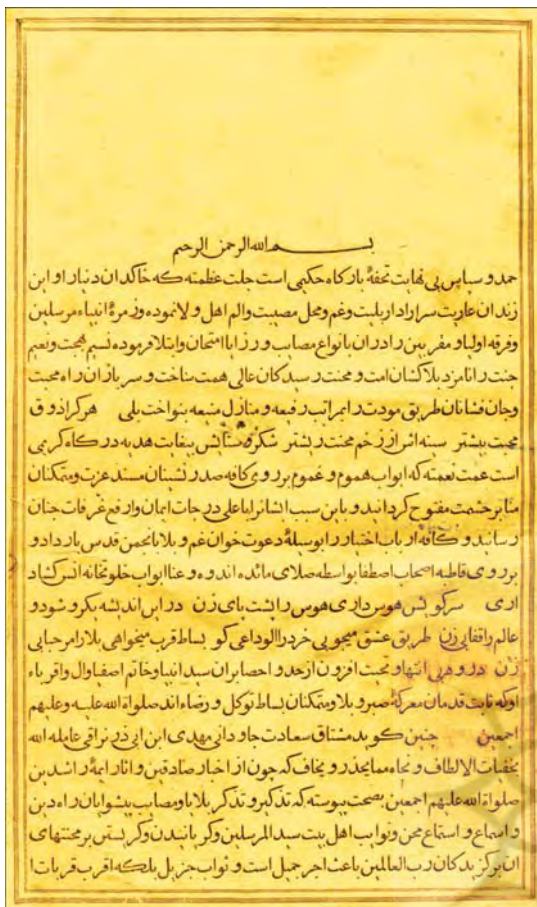 بسم الله الرحمن الرحیم
حمد و سپاس بی نهایت تحفهٔ بارکاه حکیمی است جلت عظمته که خاکدان دنیا را و این
زندان عاریت سرا را دار بلیت و غم و محل مصیبت و الم اهل ولا نموده و زمرهٔ انبیاء مرسلین
و فرقه اولیا و مقربین را در ان بانواع مصایب و رزایا امتحان و ابتلا فرموده نسیم بهجت و نعیم
جنت را نامزد بلاکشان امت و محنت رسیدکان عالی همت ساخت و سربازان راه محبت
و جان فشانان طریق مودت را بمراتب رفیعه و منازل منیعه بنواخت بلی هر کرا ذوق
محبت بیشتر سینه اش از زخم محنت ریشتر شکر و ستایش بیغایت هدیه درکاه کریمی
است عمت نعمته که ابواب هموم و غموم بر روی کافه صدرنشینان مسند عزت و متمکنان
منابر حشمت مفتوح کردانید و باین سبب ایشانرا باعلی درجات ایمان و ارفع غرفات جنان
رسانید و کافه ارباب اختبار را بوسیلهٔ دعوت خوان غم و بلا بانجمن قدس بار داد و
بر روی قاطبه اصحاب اصطفا بواسطه صلای مائده اندوه و عنا ابواب خلوتخانه انس کشاد
اری سر کویش هوس داری هوس را پشت پای زن در این اندیشه یکرو شو دو
عالم را قفایی زن طریق عشق میجویی خرد را الوداعی کو بساط قرب میخواهی بلا را مرحبایی
زن درود بی انتها و تحیت افزون از حد و احصا بر ان سید انبیا و خاتم اصفیا و ال و اقرباء
او که ثابت قدمان معرکهٔ صبر و بلا و متمکنان بساط توکل و رضاء اند صلواة الله علیه و علیهم
اجمعین چنین کوید مشتاق سعادت جاودانی مهدی ابن ابی ذر نراقی عامله الله
بخفیات الالطاف و نجاه مما یحذر و یخاف که چون از اخبار صادقین و اثار ایمهٔ راشدین
صلواة الله علیهم اجمعین بصحت پیوسته که تذکیر و تذکر بلایا و مصایب پیشوایان راه دین
و اسماع و استماع محن و نوایب اهل بیت سید المرسلین و کریانیدن و کریستن بر محنتهای
ان برکزیدکان رب العالمین باعث اجر جمیل است و ثواب جزیل بلکه اقرب قربات ا